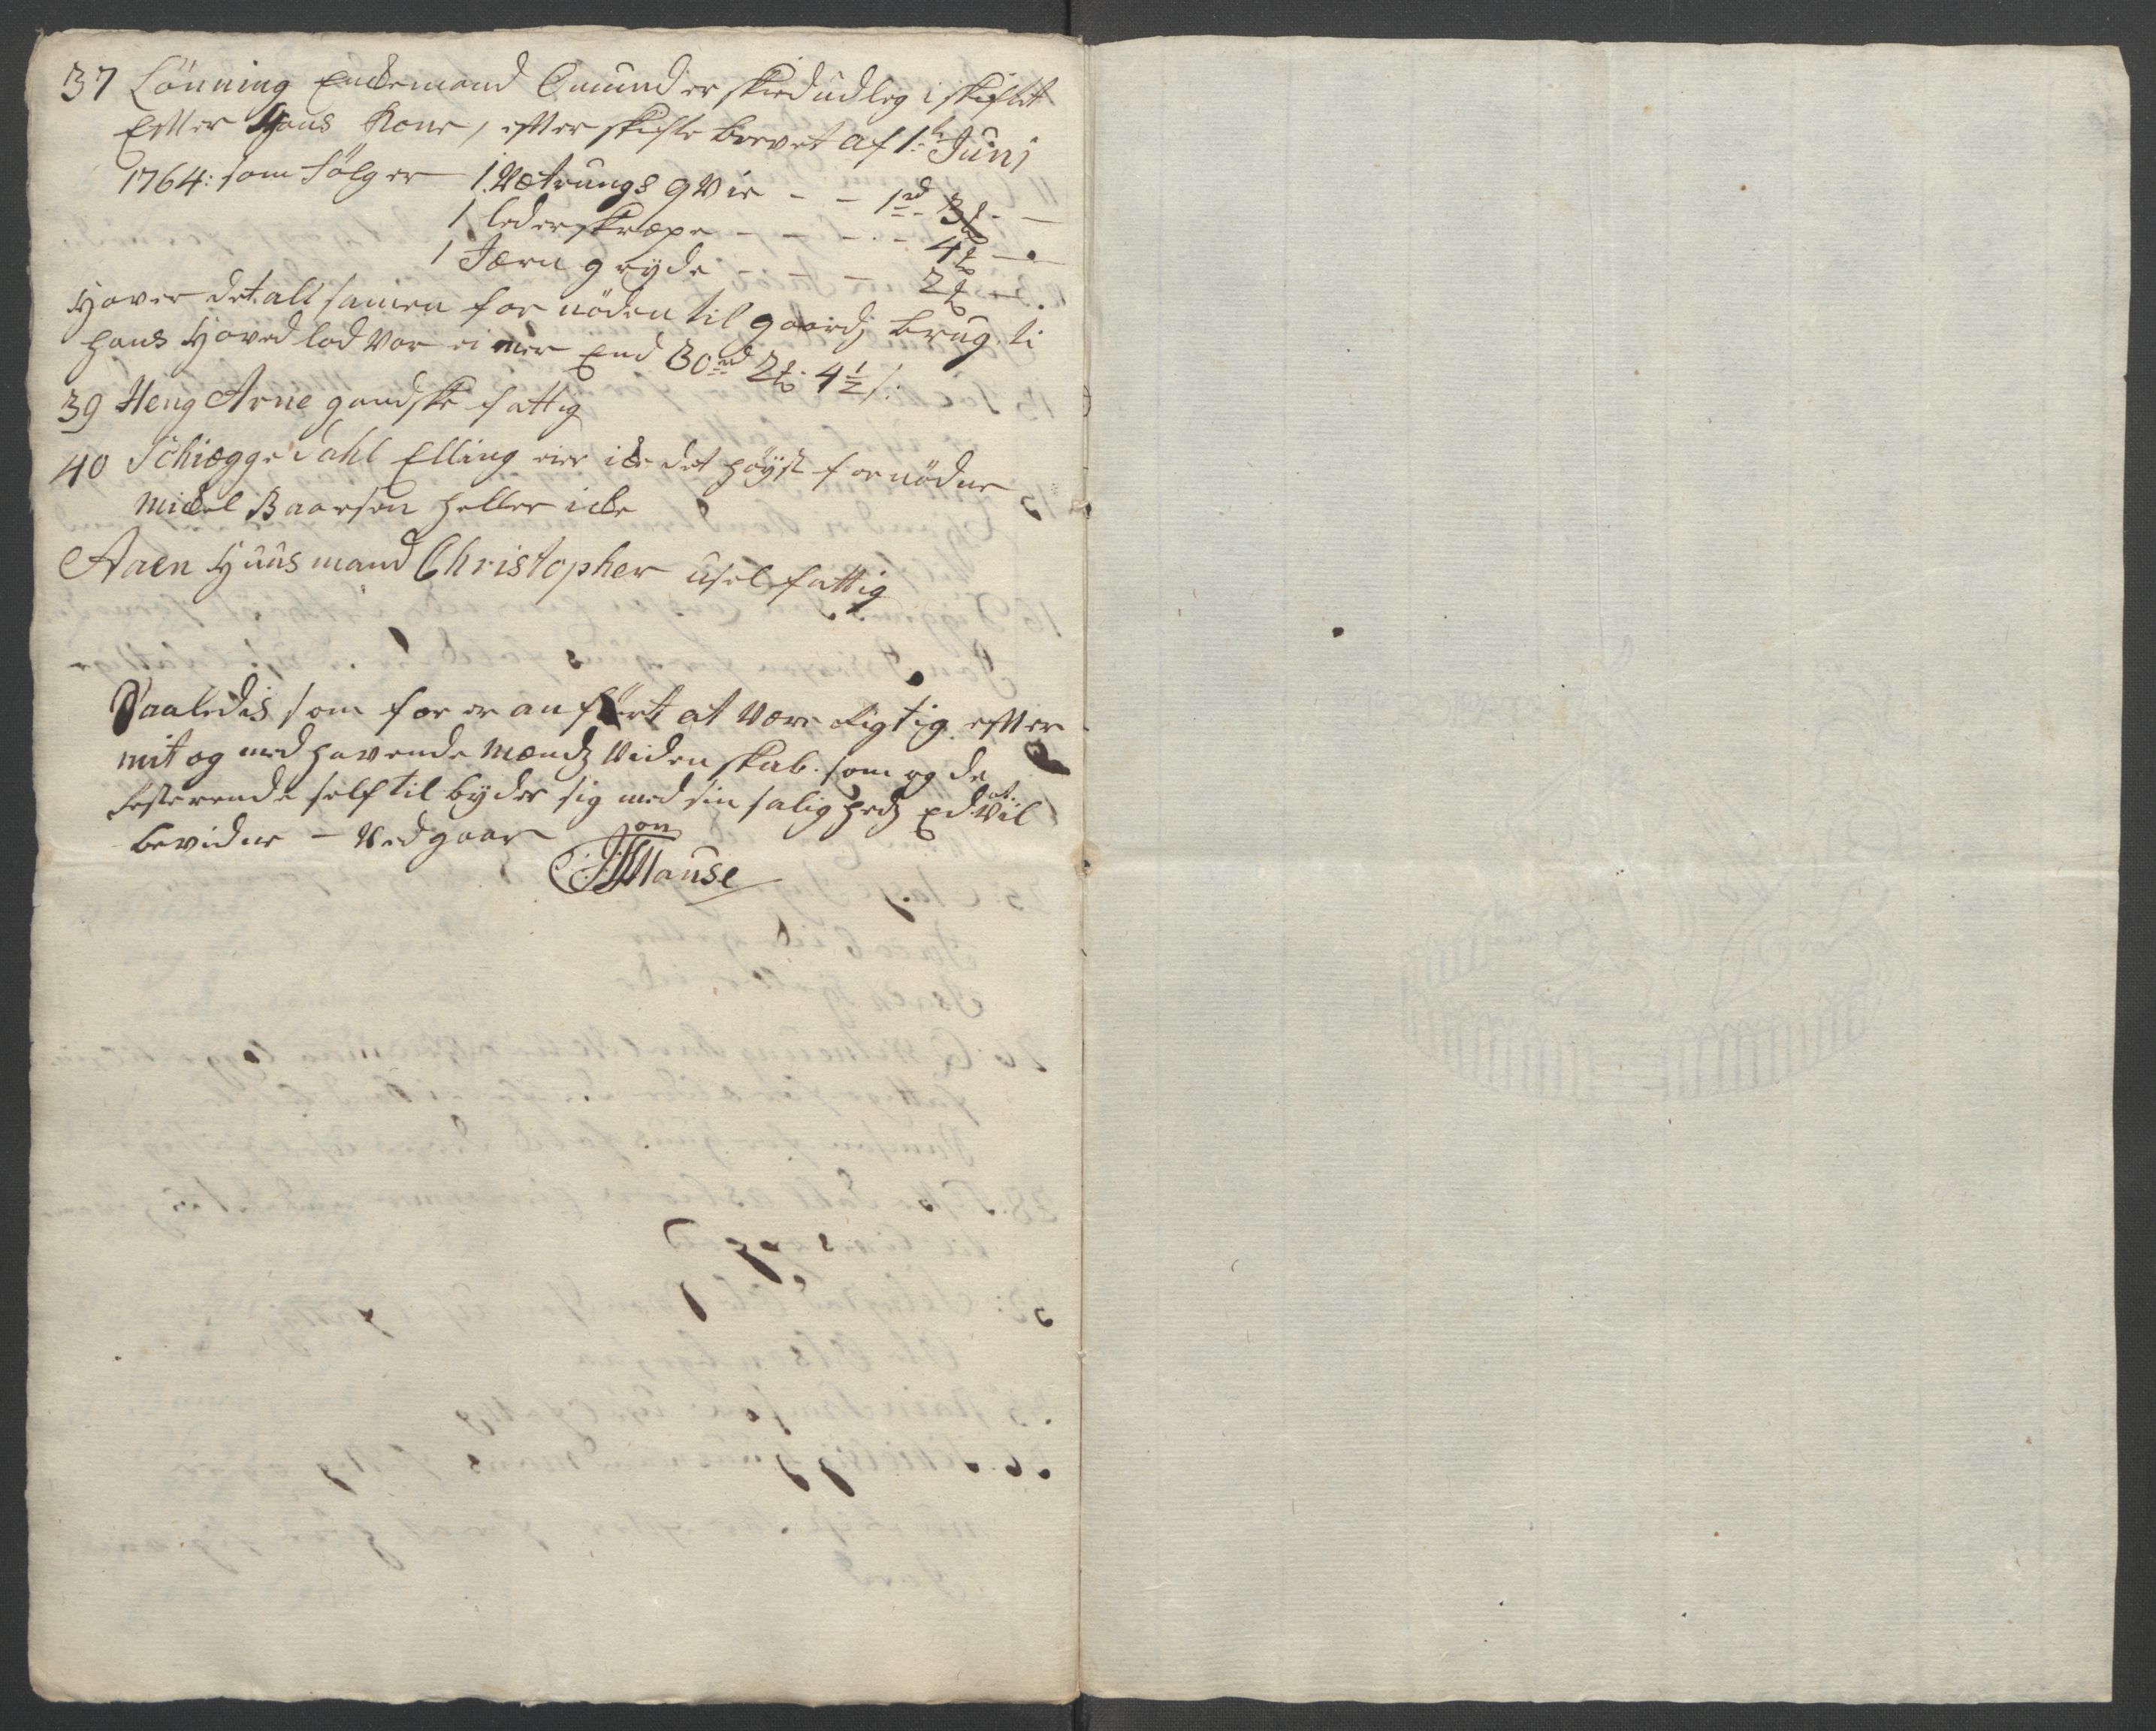 37 Lönning Enckemand Omund er skied udleg i skiftet
Efter Hans Kone, efter skifte brevet af 1te Junj
1764: som Følger 1 Vetrungs qvie - - 1 rd 3 -
1 leder skræpe - - - - 4 -
1 Jærn gryde - - - 2 -
Haver det alt samen for nöden til gaardz brug ti
hans Hoved lod var ei mer End 30 rd 2 4 1/2 s:
39 Heng Arne gandske fattig
40 Schiægge Dahl Elling eier icke det höyst fornödne
Mickel Baarsen heller icke
Aaen Huusmand Christopher usel fattig
Saaledis som for er anfört at være Rigtig efter
mit og med havende Mændz Viden skab. som og de
self til byder sig med sin salig hedz Ed at vil
bevidne - Ved gaar
Jon
Mause